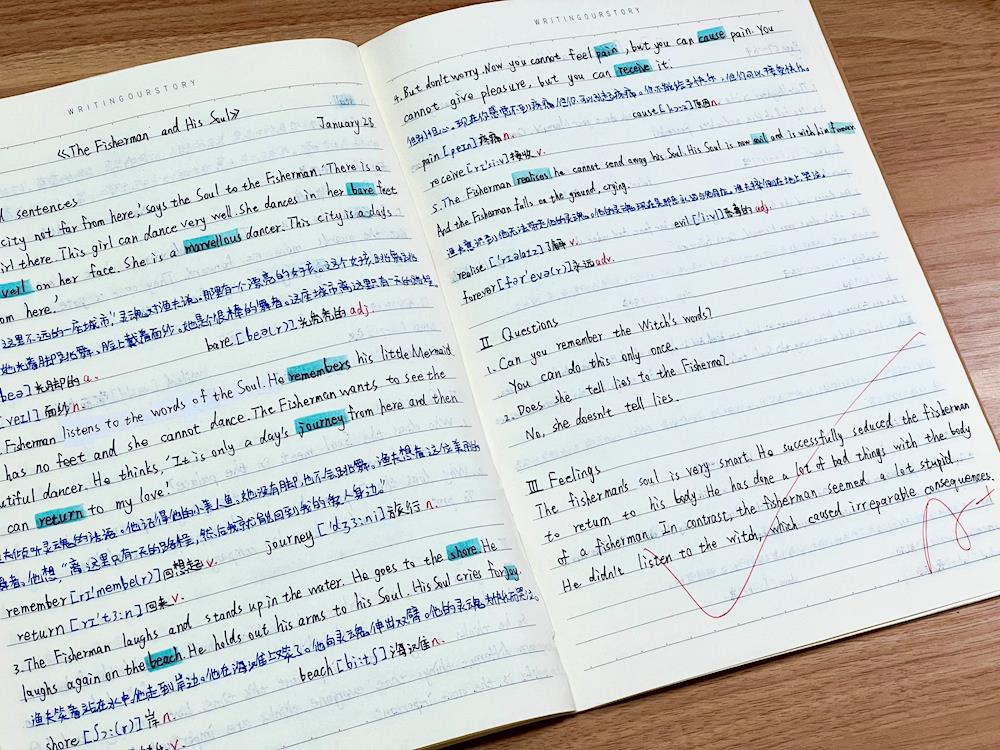 WRITINGOURSTORY
《The Fisherman and His Soul》
January 28
sentences
city not far from here,' says the Soul to the Fisherman. 'There is a
irl there. This girl can dance very well. She dances in her bare feet
veil on her face. She is a marvellous dancer. This city is a day's
om here.'
这里不远的一座城市,"灵魂对渔夫说,那里有一个漂亮的女孩。这个女孩
她光着脚跳舞,脸上戴着面纱。她是个很棒的舞者。这座城市离这里只有一天的路程。
beə] 光脚的 a. bare [beə(r)] 光秃秃的 adj.
[veɪl] 面纱 n.
Fisherman listens to the words of the Soul. He remembers his little Mermaid
has no feet and she cannot dance. The Fisherman wants to see the
utiful dancer. He thinks, 'It is only a day's journey from here and then
can return to my love.'
夫倾听灵魂的话语。他记得他的小美人鱼,她没有脚,也不会跳舞。渔夫想看这位美丽的
舞者。他想,"离这里只有一天的路程,然后我就能回到我的爱人身边。"
remember [rɪ'membe(r)] 回想起 v. journey ['dʒɜ:ni] 旅行 n.
return [rɪ't3:n] 回来 v.
3. The Fisherman laughs and stands up in the water. He goes to the shore. He
laughs again on the beach. He holds out his arms to his Soul. His Soul cries for joy.
渔夫笑着站在水中。他走到岸边。他在海滩上又笑了。他向灵魂伸出双臂。他的灵魂
shore [ʃɔ:(r)] 岸 n. beach [bi:tʃ] 海滩 n.
WRITINGOURSTORY
4. But don't worry. Now you cannot feel pain, but you can cause pain. You
cannot give pleasure, but you can receive it.
但别担心。现在你感觉不到疼痛,但你可以引起疼痛。你不能给予快乐,但你可以接受快乐。
pain [peɪn] 疼痛 n. cause [kɔ:z] 原因 n.
receive [rɪ'si:v] 接收 v.
5. The Fisherman realises he cannot send away his Soul. His Soul is now evil and is with him forever.
And the Fisherman falls on the ground, crying.
渔夫意识到他无法带走他的灵魂。他的灵魂现在是邪恶的
realise ['rɪəlaɪz] 了解 v. evil ['i:vl] 恶毒的 adj.
forever [fər'evə(r)] 永远 adv.
II Questions
1. Can you remember the Witch's words?
You can do this only once.
2. Does she tell lies to the Fisherma?
No, she doesn't tell lies.
III Feelings
The fisherman's soul is very smart. He successfully seduced the fisherman
to return to his body. He has done a lot of bad things with the body
of a fisherman. In contrast, the fisherman seemed a lot stupid.
He didn't listen to the witch, which caused irreparable consequences.